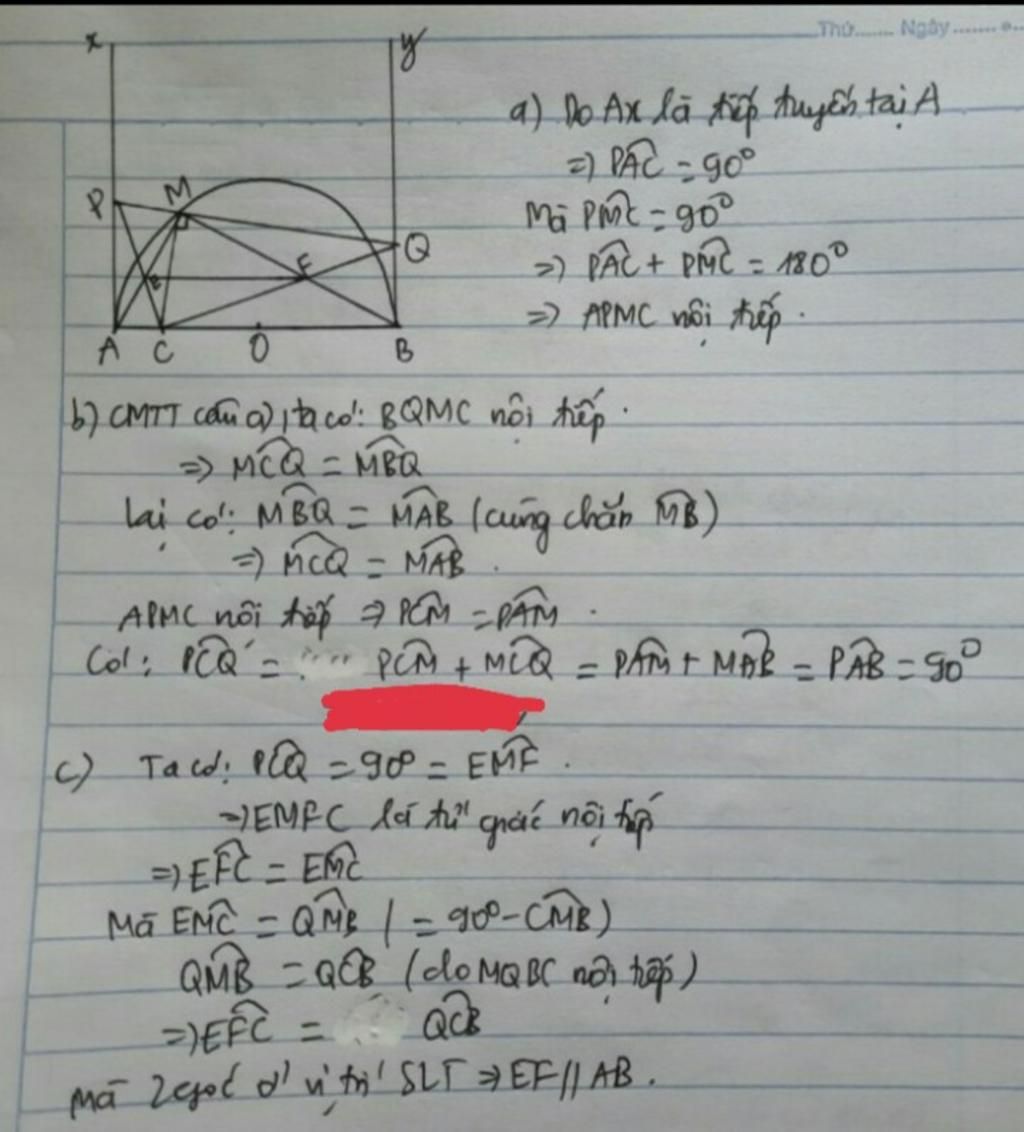 Thứ....... Ngày.......
x
y
a) Do Ax là tiếp tuyến tại A
=> PAC = 90°
P
M
Mà PMC = 90°
Q
=> PAC + PMC = 180°
E
F
=> APMC nội tiếp.
A C O B
b) CMTT câu a), ta có: BQMC nội tiếp.
=> MCQ = MBQ
Lại có: MBQ = MAB (cùng chắn MB)
=> MCQ = MAB.
APMC nội tiếp => PCM = PAM.
Có: PCQ = PCM + MCQ = PAM + MAB = PAB = 90°
c) Ta có: PCQ = 90° = EMF.
=> EMFC là tứ giác nội tiếp
=> EFC = EMC
Mà EMC = QMB (= 90° - CMB)
QMB = QCB (do MQBC nội tiếp)
=> EFC = QCB
Mà 2 góc ở vị trí SLT => EF // AB.